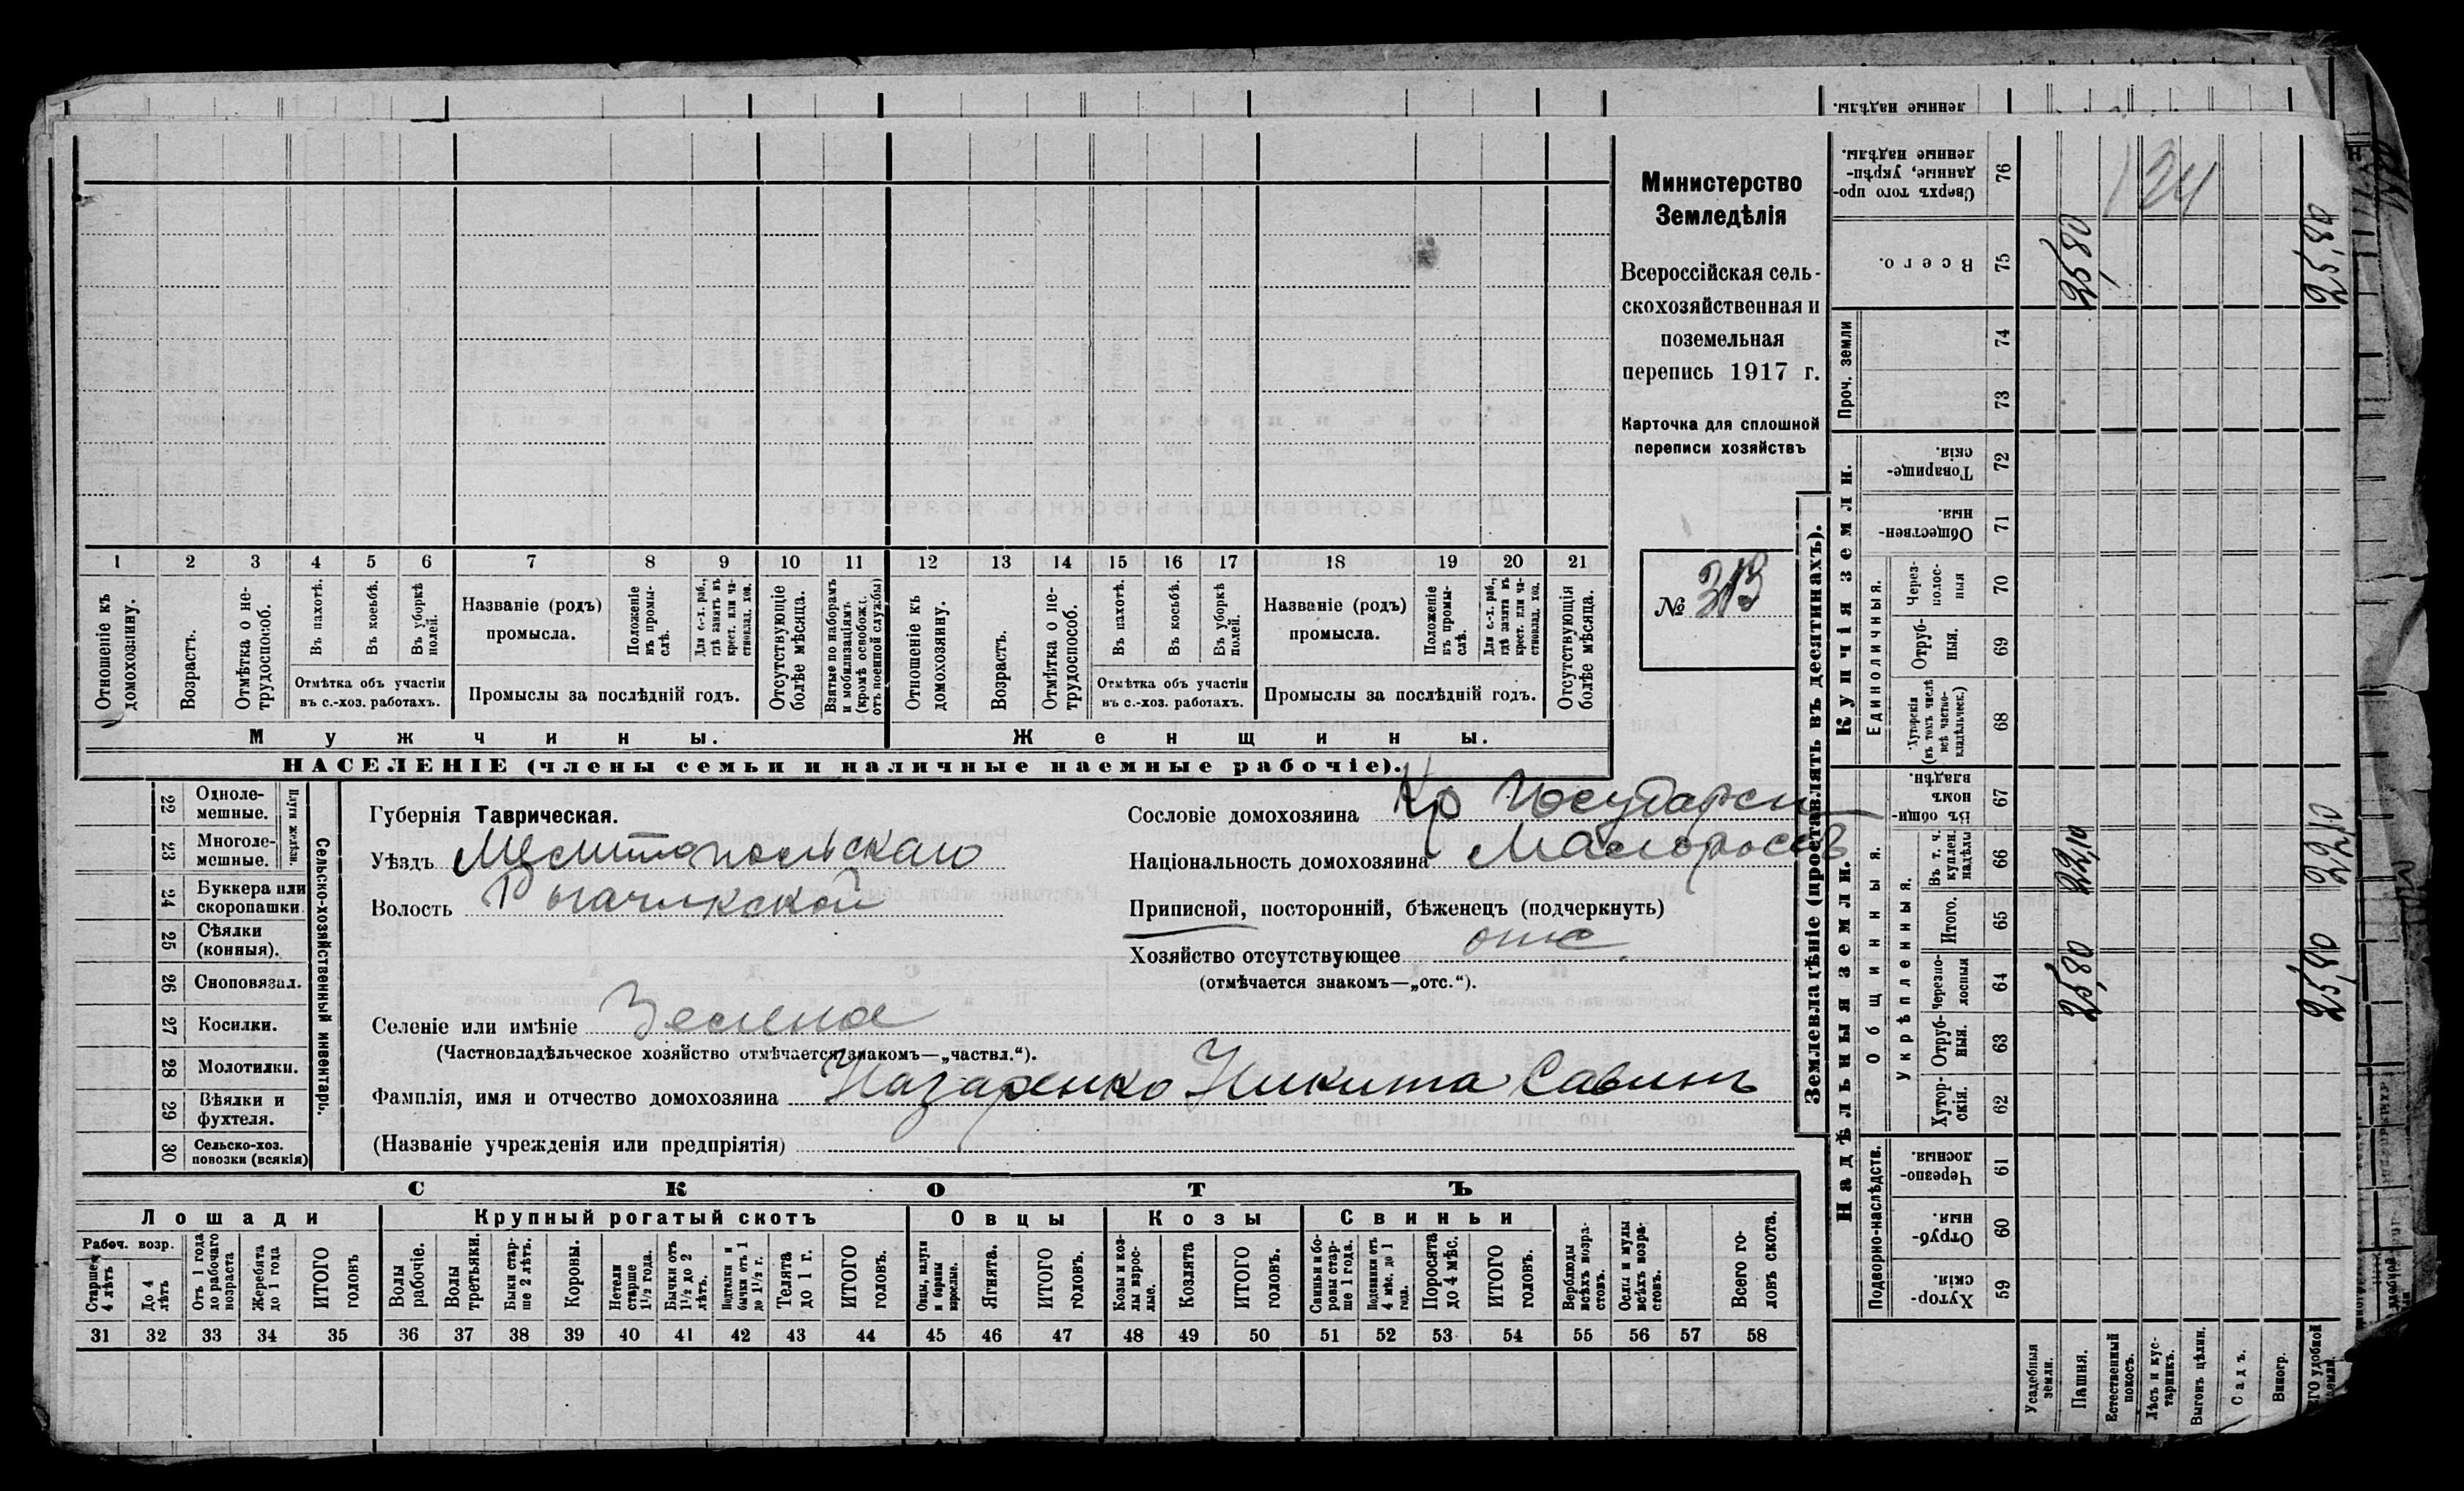 Министерство
Земледѣлія
Всероссійская сель-
скохозяйственная и
поземельная
перепись 1917 г.
Карточка для сплошной
переписи хозяйствъ
№ 313
1 2 3 4 5 6 7 8 9 10 11 12 13 14 15 16 17 18 19 20 21
Отношеніе къ домохозяину.
Возрастъ.
Отмѣтка о не-трудоспособ.
Въ пахотѣ.
Въ косьбѣ.
Въ уборкѣ полей.
Отмѣтка объ участіи
въ с.-хоз. работахъ.
Названіе (родъ)
промысла.
Положеніе въ промы-слѣ.
Для с.-х. раб., гдѣ занятъ въ крест. или ча-стновлад. хоз.
Промыслы за послѣдній годъ.
Отсутствующіе болѣе мѣсяца.
Взятые по наборамъ и мобилизаціямъ (кромѣ освобожд. отъ военной службы)
Отношеніе къ домохозяину.
Возрастъ.
Отмѣтка о не-трудоспособ.
Въ пахотѣ.
Въ косьбѣ.
Въ уборкѣ полей.
Отмѣтка объ участіи
въ с.-хоз. работахъ.
Названіе (родъ)
промысла.
Положеніе въ промы-слѣ.
Для с.-х. раб., гдѣ занята въ крест. или ча-стновлад. хоз.
Промыслы за послѣдній годъ.
Отсутствующія болѣе мѣсяца.
Мужчины.
Женщины.
НАСЕЛЕНІЕ (члены семьи и наличные наемные рабочіе).
22 Одноле-мешные.
23 Многоле-мешные.
Плуги желѣзн.
24 Буккера или скоропашки
25 Сѣялки (конныя).
26 Сноповязал.
27 Косилки.
28 Молотилки.
29 Вѣялки и фухтеля.
30 Сельско-хоз. повозки (всякія)
Сельско-хозяйственный инвентарь.
Губернія Таврическая.
Уѣздъ Мелитопольскаго
Волость Рогачикской
Селеніе или имѣніе Зелена
(Частновладѣльческое хозяйство отмѣчается знакомъ—„частвл.“).
Фамилія, имя и отчество домохозяина Назаренко Никита Савинъ
(Названіе учрежденія или предпріятія)
Сословіе домохозяина Кр Государст
Національность домохозяина Малороссъ
Приписной, посторонній, бѣженецъ (подчеркнуть)
Хозяйство отсутствующее отс.
(отмѣчается знакомъ—„отс.“).
СКОТЪ
Лошади
Крупный рогатый скотъ
Овцы
Козы
Свиньи
Рабоч. возр.
Старше 4 лѣтъ
До 4 лѣтъ
Отъ 1 года до рабочаго возраста
Жеребята до 1 года
ИТОГО головъ
Волы рабочіе.
Волы третьяки.
Быки стар-ше 2 лѣтъ.
Коровы.
Нетели старше 1½ года.
Бычки отъ 1½ до 2 лѣтъ.
Подтелки и бычки отъ 1 до 1½ г.
Телята до 1 г.
ИТОГО головъ.
Овцы, валухи и бараны взрослые.
Ягнята.
ИТОГО головъ.
Козы и коз-лы взрос-лые.
Козлята
ИТОГО головъ.
Свиньи и бо-ровы стар-ше 1 года.
Подсвинки отъ 4 мѣс. до 1 года.
Поросята до 4 мѣс.
ИТОГО головъ.
Верблюды всѣхъ возра-стовъ.
Ослы и мулы всѣхъ возра-стовъ.
Всего го-ловъ скота.
31 32 33 34 35 36 37 38 39 40 41 42 43 44 45 46 47 48 49 50 51 52 53 54 55 56 57 58
Землевладѣніе (проставлять въ десятинахъ).
Надѣльныя земли.
Купчія земли.
Проч. земли
Подворно-наслѣдств.
Общинныя.
Укрѣпленныя.
Единоличныя.
Хутор-скія. 59
Отруб-ныя. 60
Черезпо-лосныя. 61
Хутор-скія. 62
Отруб-ныя. 63
Черезпо-лосныя 64
Итого. 65
Въ т. ч. куплен. надѣлы 66
Въ общи-номъ владѣн. 67
Хуторскія (въ томъ числѣ всѣ частно-владѣльческ.) 68
Отруб-ныя. 69
Через-полос-ныя 70
Обществен-ныя. 71
Товарище-скія. 72
73
74
Всего. 75
Сверхъ того про-данные, укрѣп-ленные надѣлы. 76
Усадебныя земли.
Пашня.
Естественный покосъ.
Лѣсъ и кус-тарникъ.
Выгонъ цѣлин.
Садъ.
Виногр.
25,80 22,10 25,80
25,80 22,10 25,80
124
ленные надѣлы.